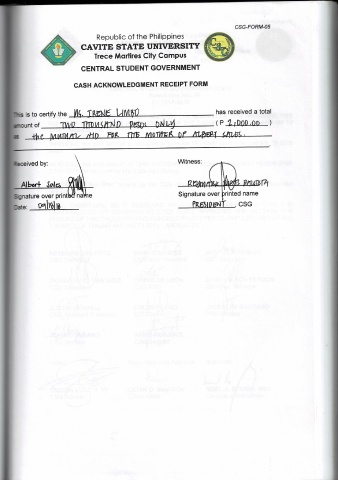 CSG-FORM-05
Republic of the Philippines
CAVITE STATE UNIVERSITY
Trece Martires City Campus
CENTRAL STUDENT GOVERNMENT
CASH ACKNOWLEDGMENT RECEIPT FORM
This is to certify the Ms. IRENE LIMBO has received a total
amount of TWO THOUSAND PESOS ONLY ( P 2,000.00 )
as the MUTUAL AID FOR THE MOTHER OF ALBERT SALES.
Received by: Witness:
Albert Sales
Signature over printed name Signature over printed name
Date: 09/18/18 PRESIDENT , CSG